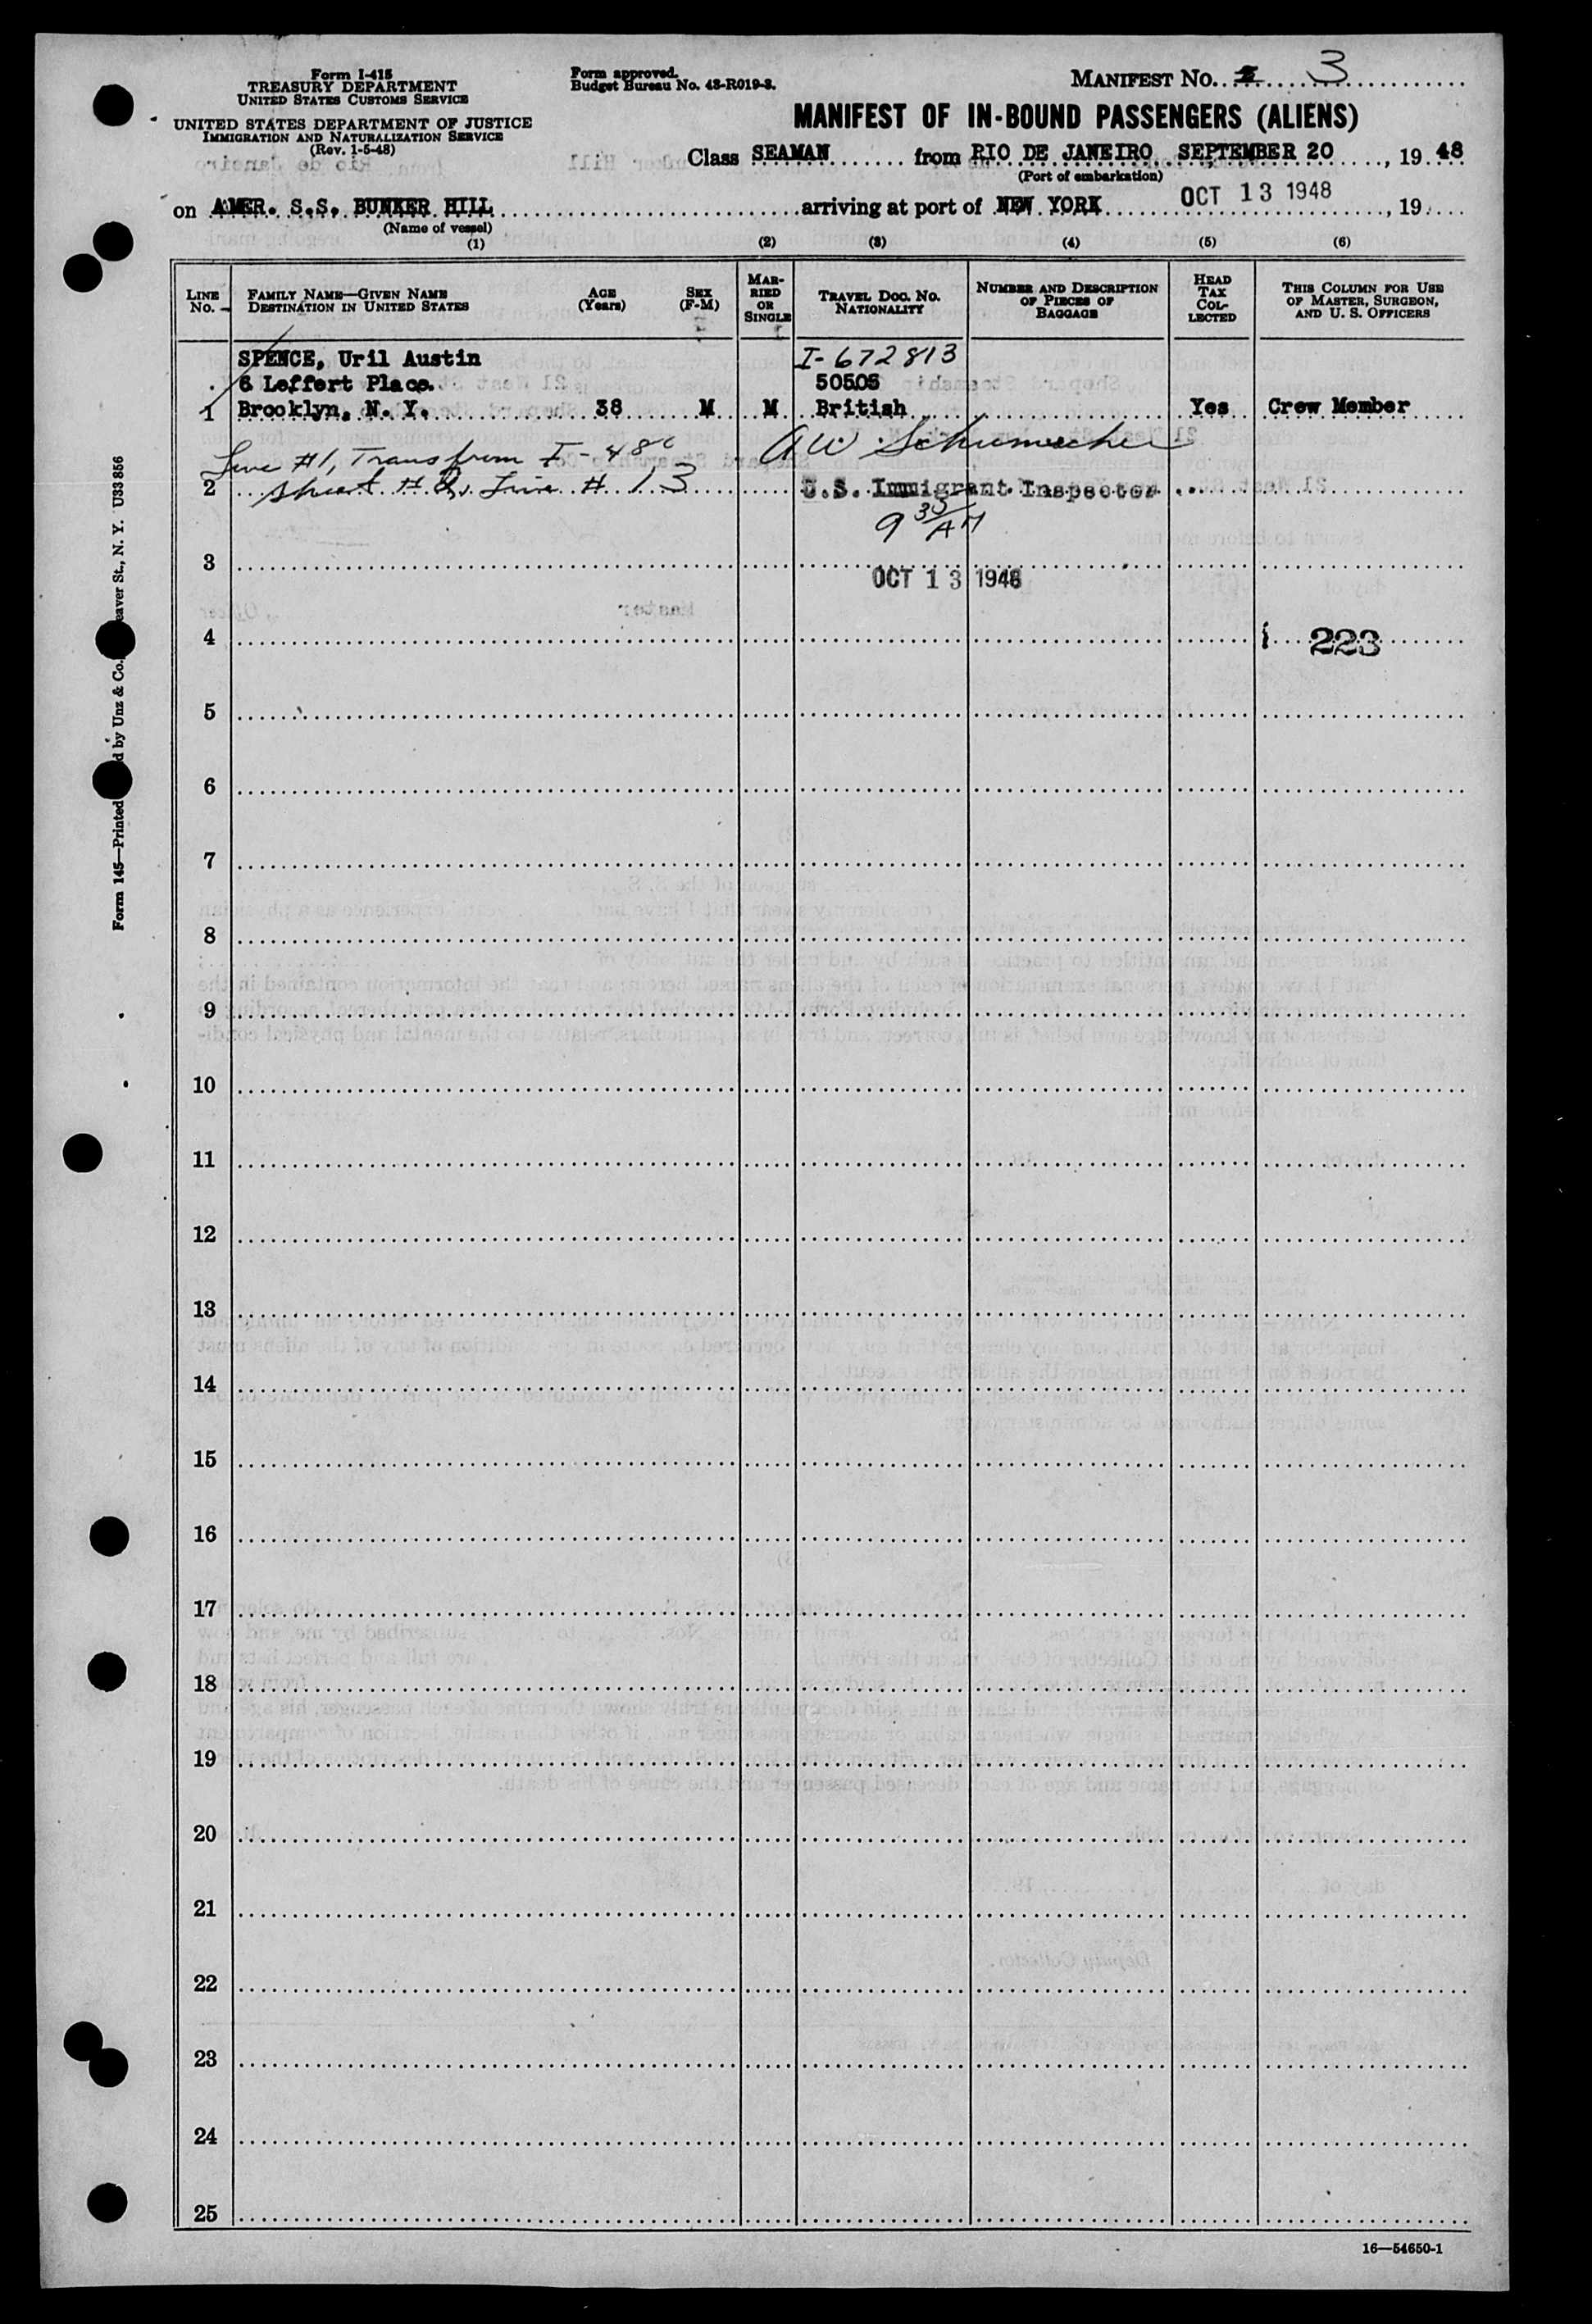 Form I-415
TREASURY DEPARTMENT
UNITED STATES CUSTOMS SERVICE
UNITED STATES DEPARTMENT OF JUSTICE
IMMIGRATION AND NATURALIZATION SERVICE
(Rev. 1-5-48)
Form approved.
Budget Bureau No. 43-R019-3.
MANIFEST NO. 3
MANIFEST OF IN-BOUND PASSENGERS (ALIENS)
Class SEAMAN from RIO DE JANEIRO SEPTEMBER 20, 19 48
(Port of embarkation)
on AMER. S.S. BUNKER HILL arriving at port of NEW YORK OCT 13 1948, 19
(Name of vessel)
(1) (2) (3) (4) (5) (6)
LINE No. FAMILY NAME—GIVEN NAME DESTINATION IN UNITED STATES AGE (Years) SEX (F-M) MARRIED OR SINGLE TRAVEL DOC. NO. NATIONALITY NUMBER AND DESCRIPTION OF PIECES OF BAGGAGE HEAD TAX COLLECTED THIS COLUMN FOR USE OF MASTER, SURGEON, AND U. S. OFFICERS
SPENCE, Uril Austin I-672813
6 Leffert Place. 50505
1 Brooklyn, N. Y. 38 M M British Yes Crew Member
Line #1, Trans from I-480 A W Schumacher
2 sheet # 2, Line # 13 U.S. Immigrant Inspector
9 30/AM
3
OCT 13 1948
4 223
5
6
7
8
9
10
11
12
13
14
15
16
17
18
19
20
21
22
23
24
25
16—54650-1
Form 145—Printed by Unz & Co. eaver St., N. Y. U33 856